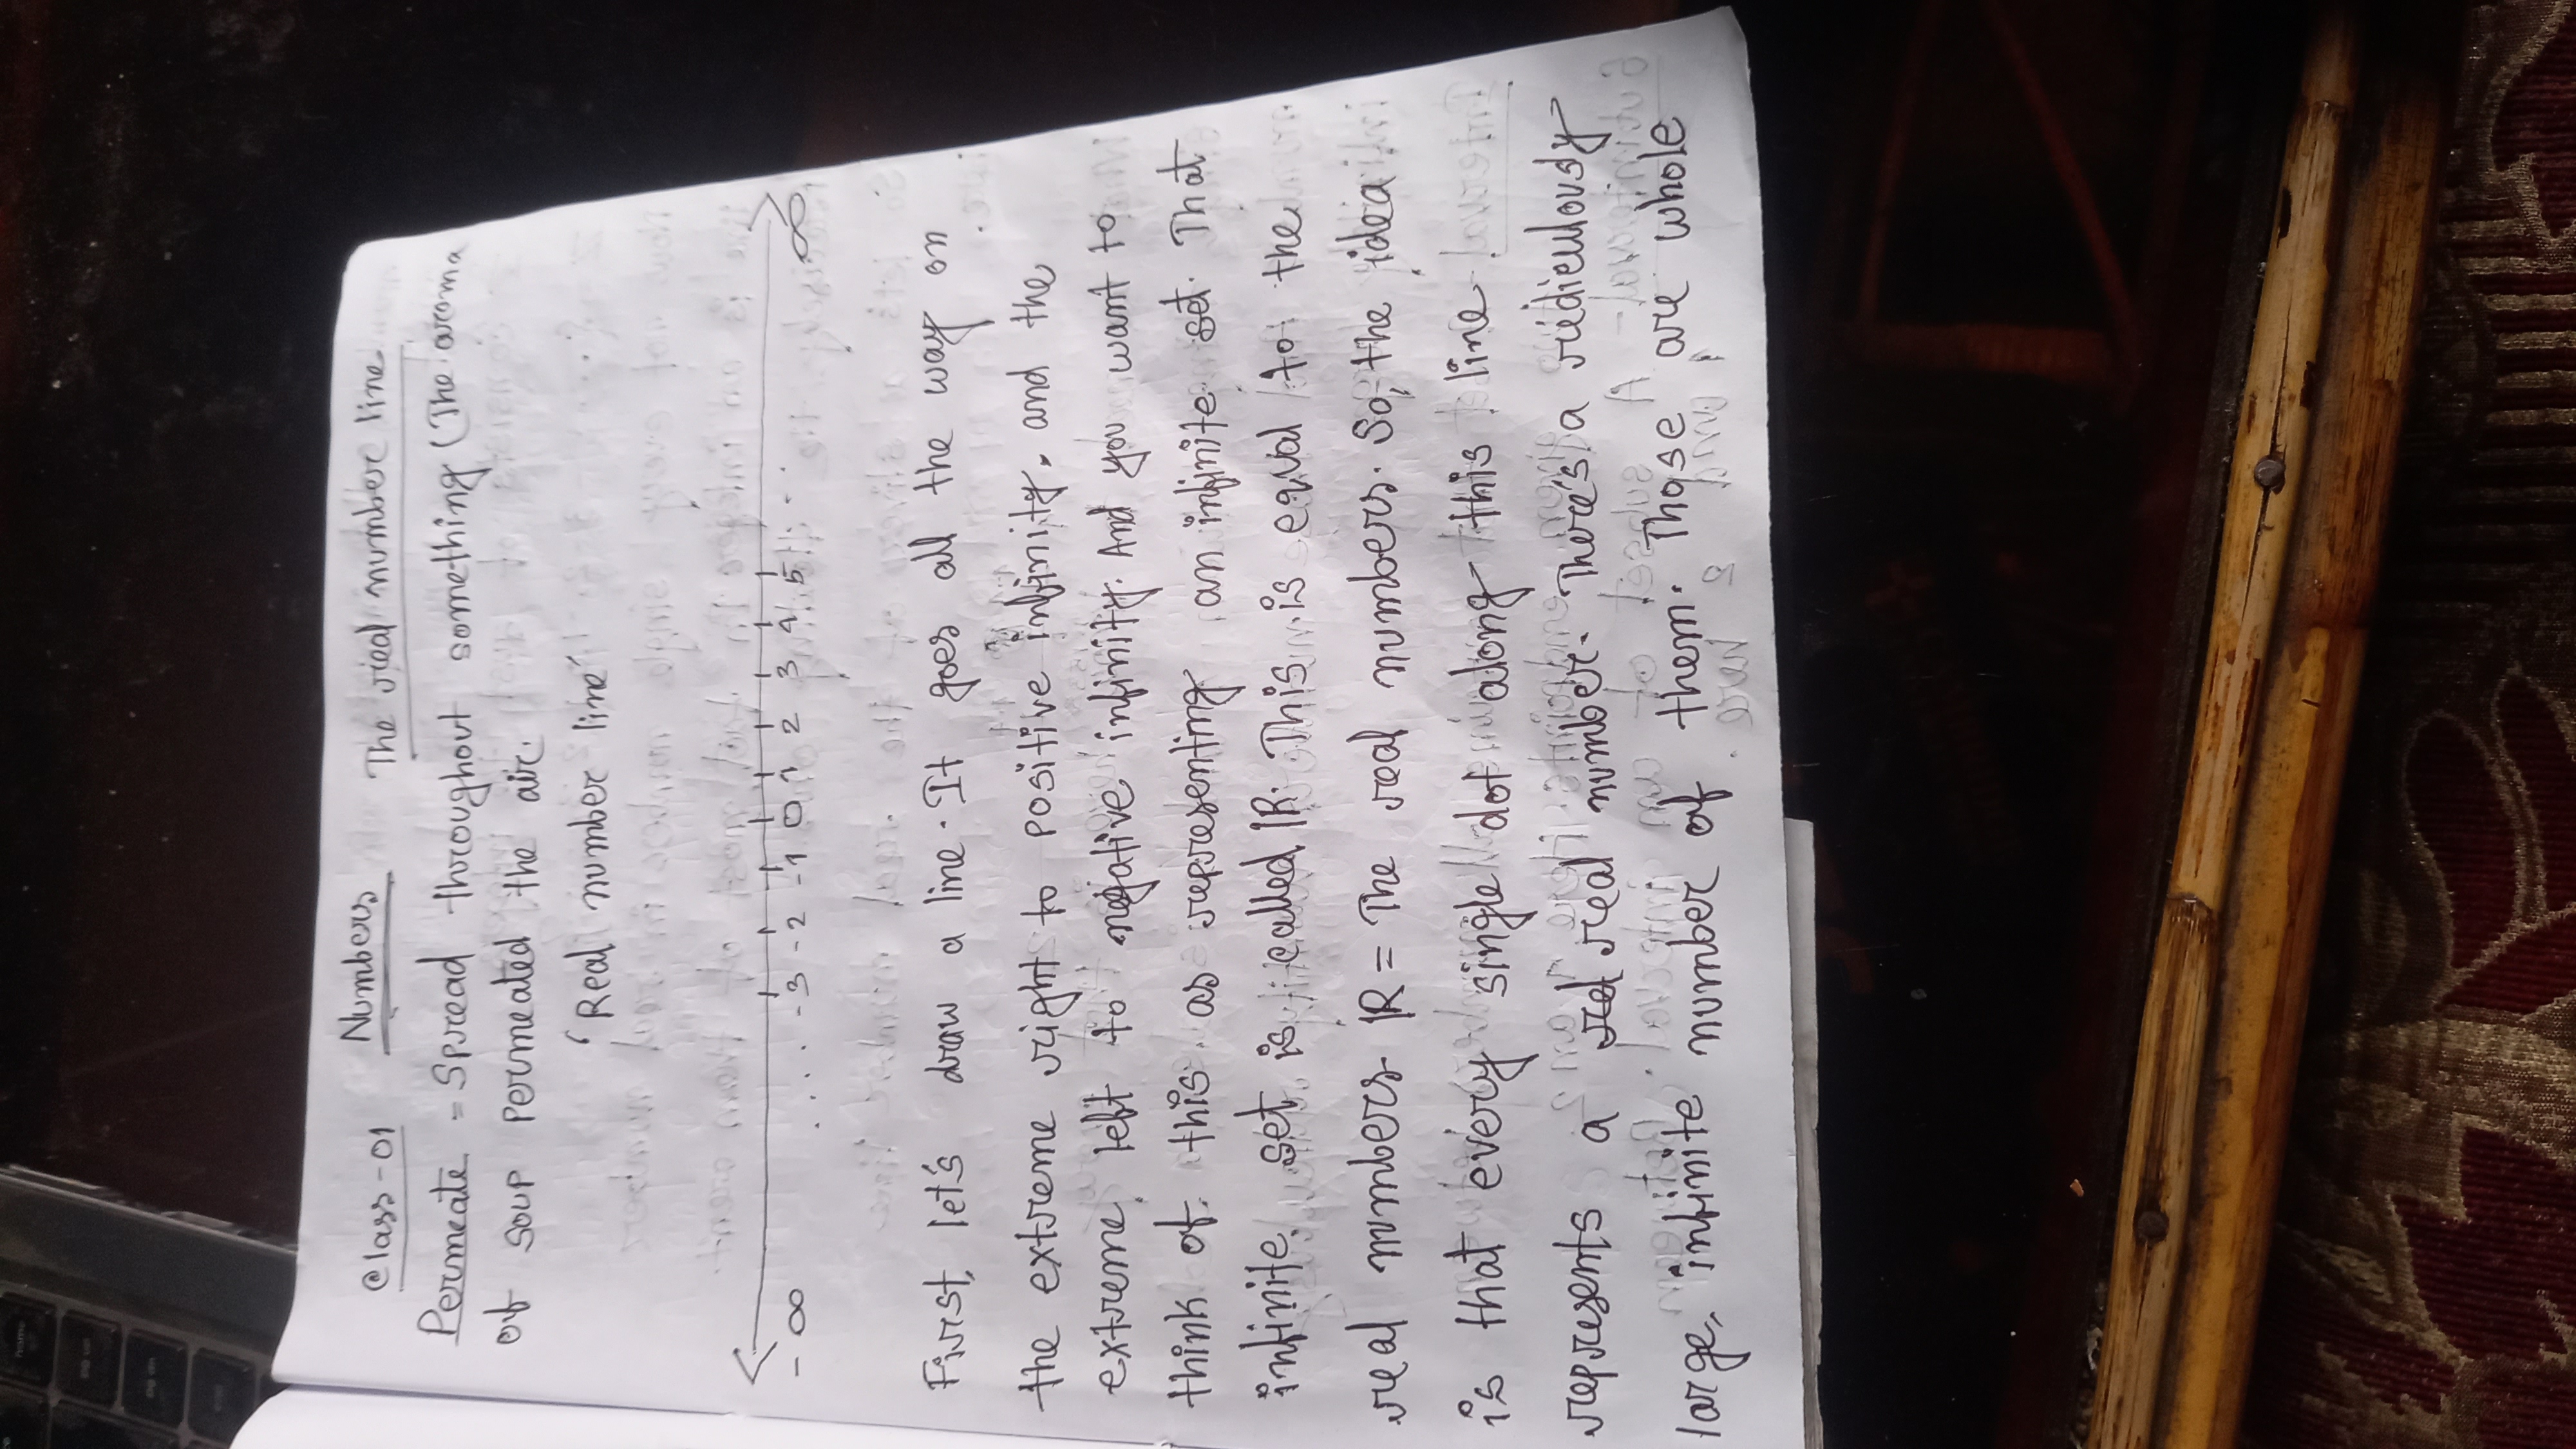 home
pg up
pg dn
end
Class-01 Numbers The real number line
Permeate = Spread throughout something (The aroma
of soup permeated the air.
'Real number line'
- ∞ .... -3 -2 -1 0 1 2 3 4 5 ... ∞
First, let's draw a line. It goes all the way on
the extreme right to positive infinity. and the
extreme left to negative infinity. And you want to
think of this as representing an infinite set. That
infinite set is called ℝ. This is equal to the
real numbers ℝ = The real numbers. So, the idea
is that every single dot along this line
represents a real number. There's a rediculously
large, infinite number of them. Those are whole